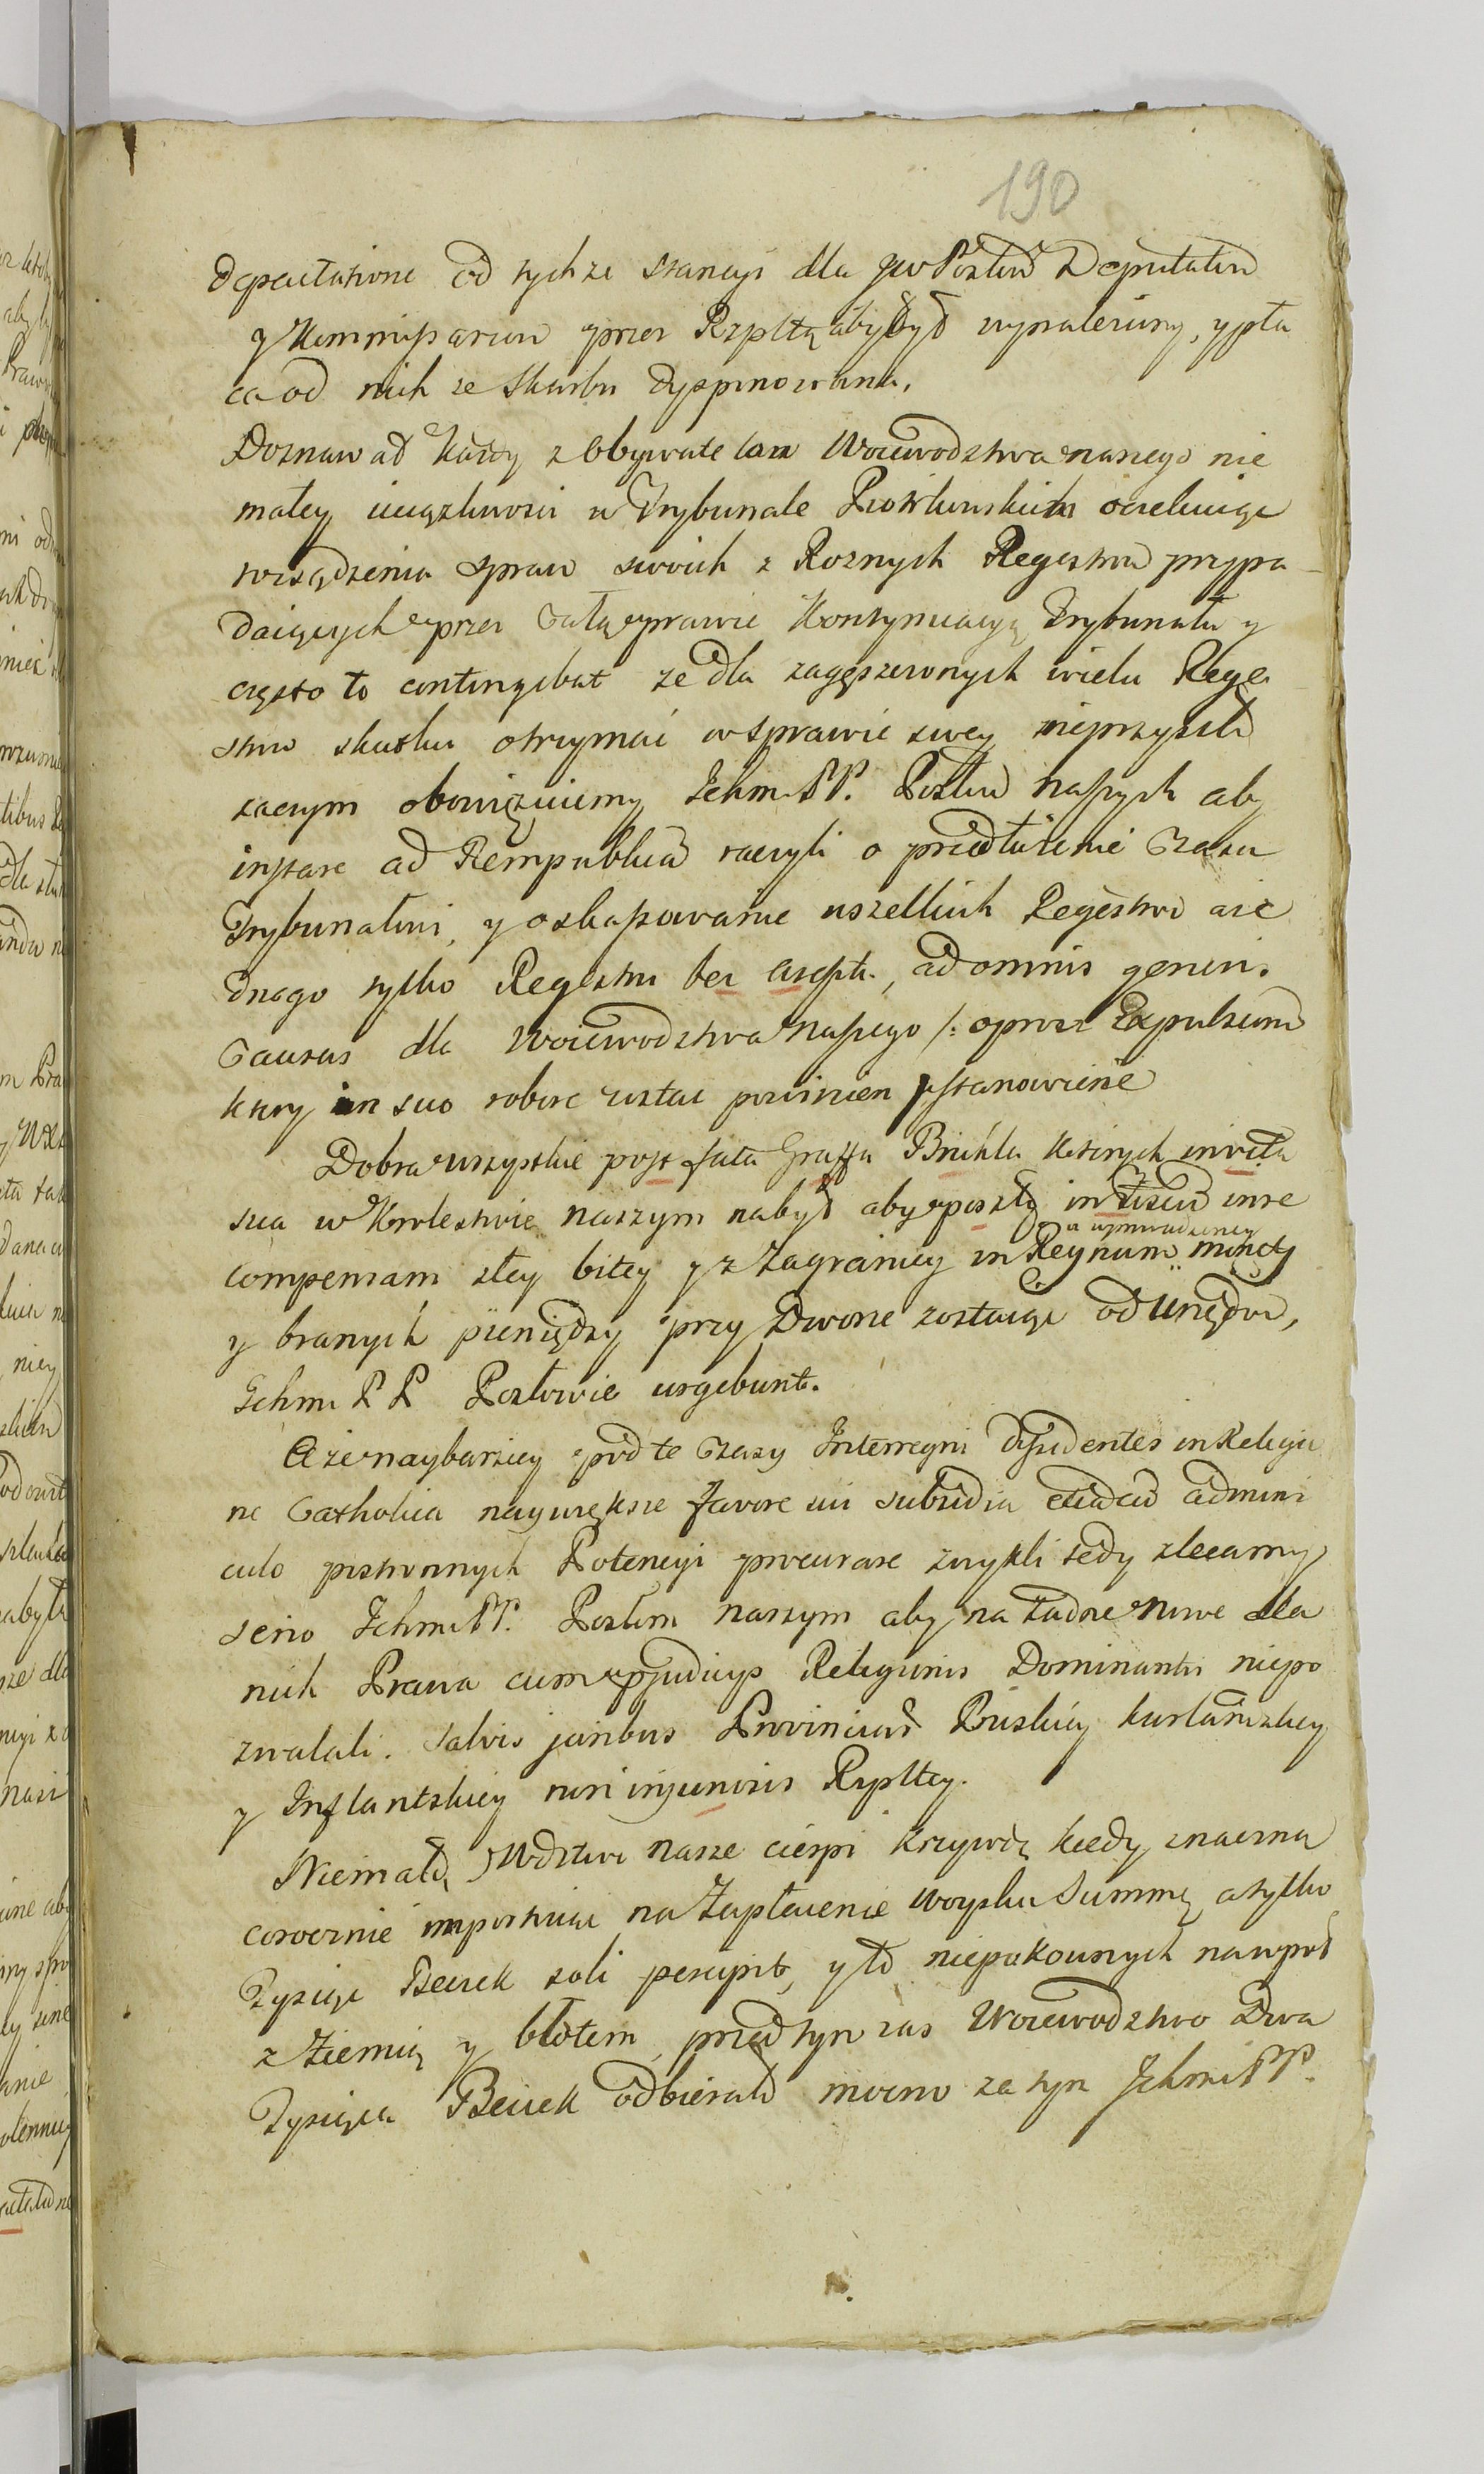 190
deputatione od tychze stancyi dla JW Posłów Deputatów
y Kommissarzow przez Rzpltą aby był wynaleziony, y pła
ca od nich ze Skarbu dysponowana,
Doznawał kazdy z Obywatelow Woiewodztwa naszego nie
małey uciązliwosci w Trybunale Piotrkowskim oczekuiąc
rosądzenia spraw swoich z Roznych Regestrow przypa
daiących przez całą prawie Kontynuacyą Trybunału y
często to contingebat ze dla zagęszczonych wielu Rege
strow skutku otrzymać w sprawie swey nieprzyszło
zaczym obowięzuiemy Ichm PP. Posłów naszych aby
instare ad Rempublicam raczyli o przedłużenie czasu
Trybunałowi, y oskassowanie wszelkich Regestrow a ie
dnego tylko Regestru bez except., ad omnis generis
Causas dla Woiewodztwa naszego /: oprocz Expulsionum
ktory in suo robore zostac powinien / stanowienie
Dobra wszystkie post fata Graffa Brühla ktorych in vita
sua w Krolestwie naszym nabył aby poszły in fiscum in re
compensam złey bitey y z Zagranicy in Regnum wprowadzoney monety
y branych pieniędzy przy Dworze zostaiąc od Urzędow,
Ichm PP Posłowie urgebunt.
A ze naybarziey pod te czasy Interregni Dissidentes in Religio
ne Catholica naywiększe favore sui subsidia etiam cum admini
culo postronnych Potencyi procurare zwykli tedy zlecamy
serio Ichm PP. Posłom naszym aby na żadne nowe dla
nich Prawa cum præjudicijs Religionis Dominantis niepo
zwalali. Salvis juribus Provinciarum Pruskiey Kurlandzkiey
y Inflantskiey non injuriosis Rzpltey.
Niemałą Wdztwo nasze cierpi krzywdę kiedy znaczną
corocznie importuiąc na Zapłacenie Woysku Summę a tylko
Tysiąc Beczek soli percipit, y to niepakownych nawpoł
z Ziemią y błotem, przedtym zas Woiewodztwo Dwa
Tysiąca Beczek odbierało mocno za tym Ichm PP.